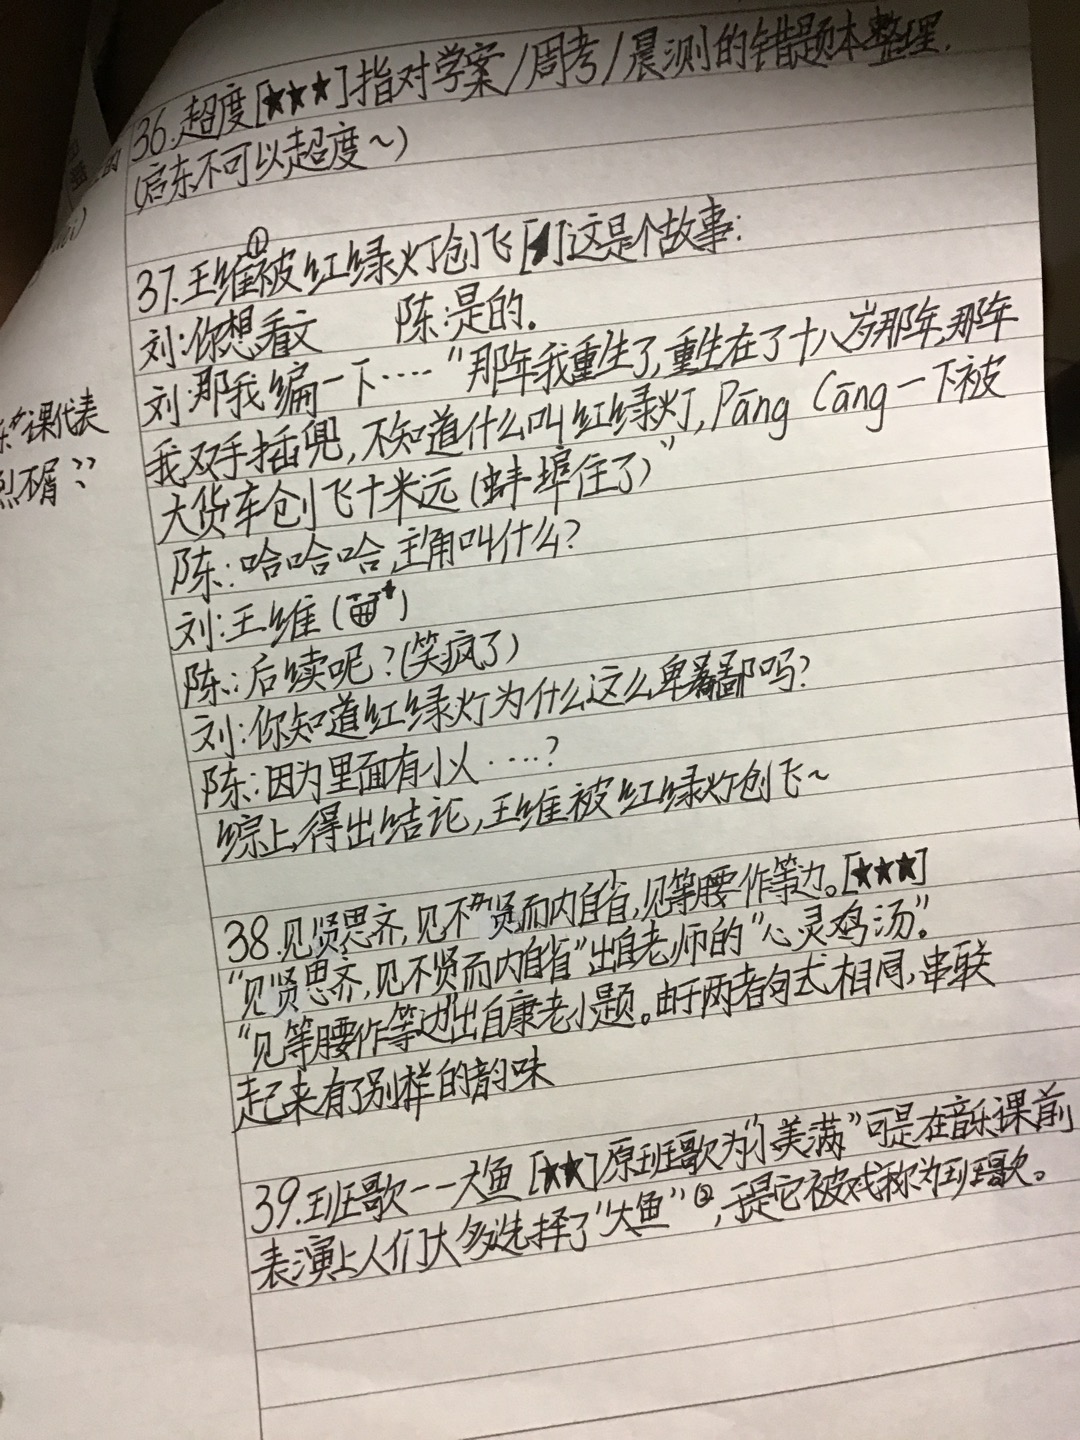 36.超度[★★★]指对学案/周考/晨测的错题本整理.
(启东不可以超度~)
37.王维①被红绿灯创飞[★]这是个故事:
刘:你想看文 陈:是的.
刘:那我编一下……"那年我重生了,重生在了十八岁那年,那年
我双手插兜,不知道什么叫红绿灯,Pāng Cāng一下被
大货车创飞十米远(蚌埠住了)"
陈:哈哈哈,主角叫什么?
刘:王维()
陈:后续呢?(笑疯了)
刘:你知道红绿灯为什么这么卑鄙吗?
陈:因为里面有小人……?
综上,得出结论,王维被红绿灯创飞~
38.见贤思齐,见不贤而内自省,见等腰作等边。[★★★]
"见贤思齐,见不贤而内自省"出自老师的"心灵鸡汤"。
"见等腰作等边"出自康老小题。由于两者句式相同,串联
起来有了别样的韵味
39.班歌——大鱼[★★]原班歌为"小美满"可是在音乐课前
表演上人们大多选择了"大鱼"②,于是它被戏称为班歌。
课代表
不屑??
的